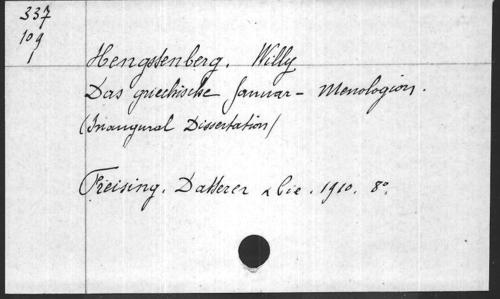 337
109
1
Hengstenberg, Willy
Das griechische Januar-Menologion.
(Inaugural Dissertation)
Freising, Datterer & Cie. 1910. 8°.